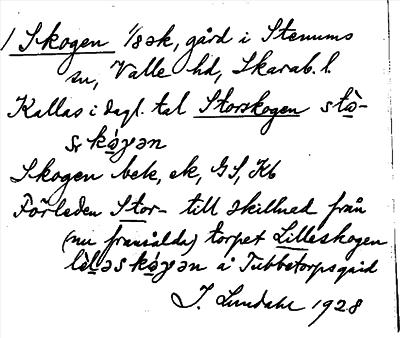 1 Skogen 1/8 sk, gård i Stenums
sn, Valle hd, Skarab. l.
Kallas i dagl. tal Storskogen stò-
skóγən
Skogen bek, ek, GS, Kb
Förleden Stor- till skillnad från
(nu frånsålda) torpet Lilleskogen
lìləskóγən å Tubbetorpsgärd
J. Lundahl 1928